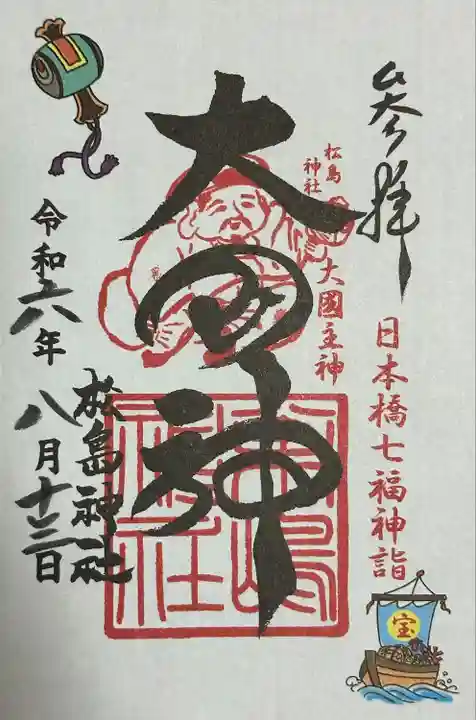 参拝
日本橋七福神詣
宝
松島
神社
大國主神
大国神
松島神社
松島神社
令和六年八月十三日